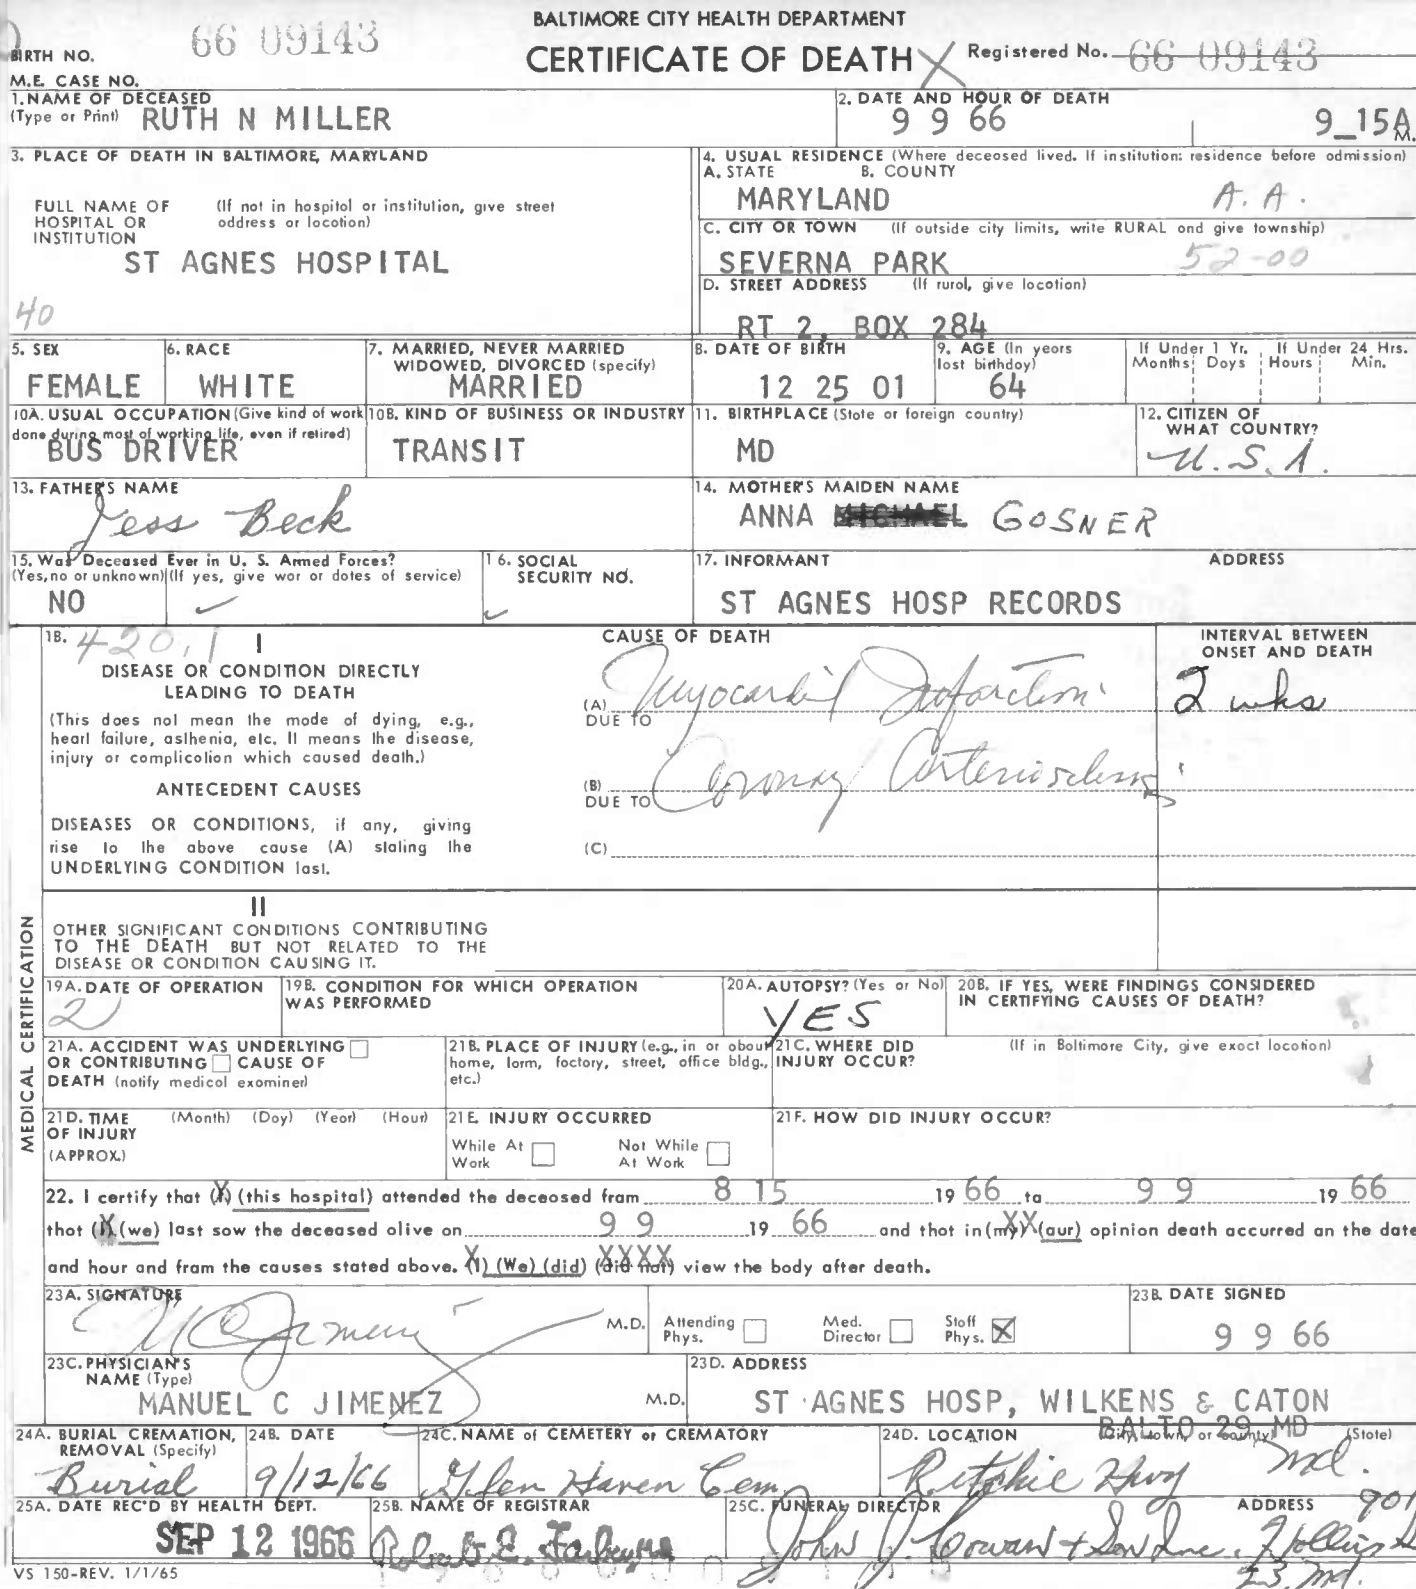 BALTIMORE CITY HEALTH DEPARTMENT
CERTIFICATE OF DEATH
BIRTH NO. 66 09143
Registered No. 66 09143
M.E. CASE NO.
1. NAME OF DECEASED
(Type or Print) RUTH N MILLER
2. DATE AND HOUR OF DEATH
9 9 66 9_15A M.
3. PLACE OF DEATH IN BALTIMORE, MARYLAND
FULL NAME OF HOSPITAL OR INSTITUTION
(If not in hospital or institution, give street address or location)
ST AGNES HOSPITAL
40
4. USUAL RESIDENCE (Where deceased lived. If institution: residence before admission)
A. STATE B. COUNTY
MARYLAND A. A.
C. CITY OR TOWN (If outside city limits, write RURAL and give township)
SEVERNA PARK 52-00
D. STREET ADDRESS (If rural, give location)
RT 2, BOX 284
5. SEX
FEMALE
6. RACE
WHITE
7. MARRIED, NEVER MARRIED
WIDOWED, DIVORCED (specify)
MARRIED
8. DATE OF BIRTH
12 25 01
9. AGE (In years
last birthday)
64
If Under 1 Yr. If Under 24 Hrs.
Months Days Hours Min.
10A. USUAL OCCUPATION (Give kind of work
done during most of working life, even if retired)
BUS DRIVER
10B. KIND OF BUSINESS OR INDUSTRY
TRANSIT
11. BIRTHPLACE (State or foreign country)
MD
12. CITIZEN OF
WHAT COUNTRY?
U.S.A.
13. FATHER'S NAME
Jess Beck
14. MOTHER'S MAIDEN NAME
ANNA MICHAEL GOSNER
15. Was Deceased Ever in U. S. Armed Forces?
(Yes, no or unknown) (If yes, give war or dates of service)
NO
16. SOCIAL
SECURITY NO.
17. INFORMANT ADDRESS
ST AGNES HOSP RECORDS
MEDICAL CERTIFICATION
18. 420.1 I
DISEASE OR CONDITION DIRECTLY
LEADING TO DEATH
(This does not mean the mode of dying, e.g.,
heart failure, asthenia, etc. It means the disease,
injury or complication which caused death.)
ANTECEDENT CAUSES
DISEASES OR CONDITIONS, if any, giving
rise to the above cause (A) stating the
UNDERLYING CONDITION last.
CAUSE OF DEATH
(A) Myocardial Infarction
DUE TO
(B) Coronary Arteriosclerosis
DUE TO
(C)
INTERVAL BETWEEN
ONSET AND DEATH
2 wks
II
OTHER SIGNIFICANT CONDITIONS CONTRIBUTING
TO THE DEATH BUT NOT RELATED TO THE
DISEASE OR CONDITION CAUSING IT.
19A. DATE OF OPERATION
2
19B. CONDITION FOR WHICH OPERATION
WAS PERFORMED
20A. AUTOPSY? (Yes or No)
YES
20B. IF YES, WERE FINDINGS CONSIDERED
IN CERTIFYING CAUSES OF DEATH?
21A. ACCIDENT WAS UNDERLYING
OR CONTRIBUTING CAUSE OF
DEATH (notify medical examiner)
21B. PLACE OF INJURY (e.g., in or about
home, farm, factory, street, office bldg.,
etc.)
21C. WHERE DID (If in Baltimore City, give exact location)
INJURY OCCUR?
21D. TIME (Month) (Day) (Year) (Hour)
OF INJURY
(APPROX.)
21E. INJURY OCCURRED
While At Work Not While At Work
21F. HOW DID INJURY OCCUR?
22. I certify that (I) (this hospital) attended the deceased from 8 15 19 66 to 9 9 19 66
that (I) (we) last saw the deceased alive on 9 9 19 66 and that in (my) (our) opinion death occurred on the date
and hour and from the causes stated above. (I) (We) (did) (did not) view the body after death.
23A. SIGNATURE
M C Jimenez M.D.
Attending Phys. Med. Director Staff Phys. X
23B. DATE SIGNED
9 9 66
23C. PHYSICIAN'S
NAME (Type)
MANUEL C JIMENEZ M.D.
23D. ADDRESS
ST AGNES HOSP, WILKENS & CATON
BALTO 29 MD
24A. BURIAL, CREMATION,
REMOVAL (Specify)
Burial
24B. DATE
9/12/66
24C. NAME of CEMETERY or CREMATORY
Glen Haven Cem
24D. LOCATION (City, town, or county) (State)
Ritchie Hwy Md.
25A. DATE REC'D BY HEALTH DEPT.
SEP 12 1966
25B. NAME OF REGISTRAR
Robert E. Farber
25C. FUNERAL DIRECTOR ADDRESS
John J. Cowan & Son Inc. 901 Hollins St
23, Md.
VS 150-REV. 1/1/65